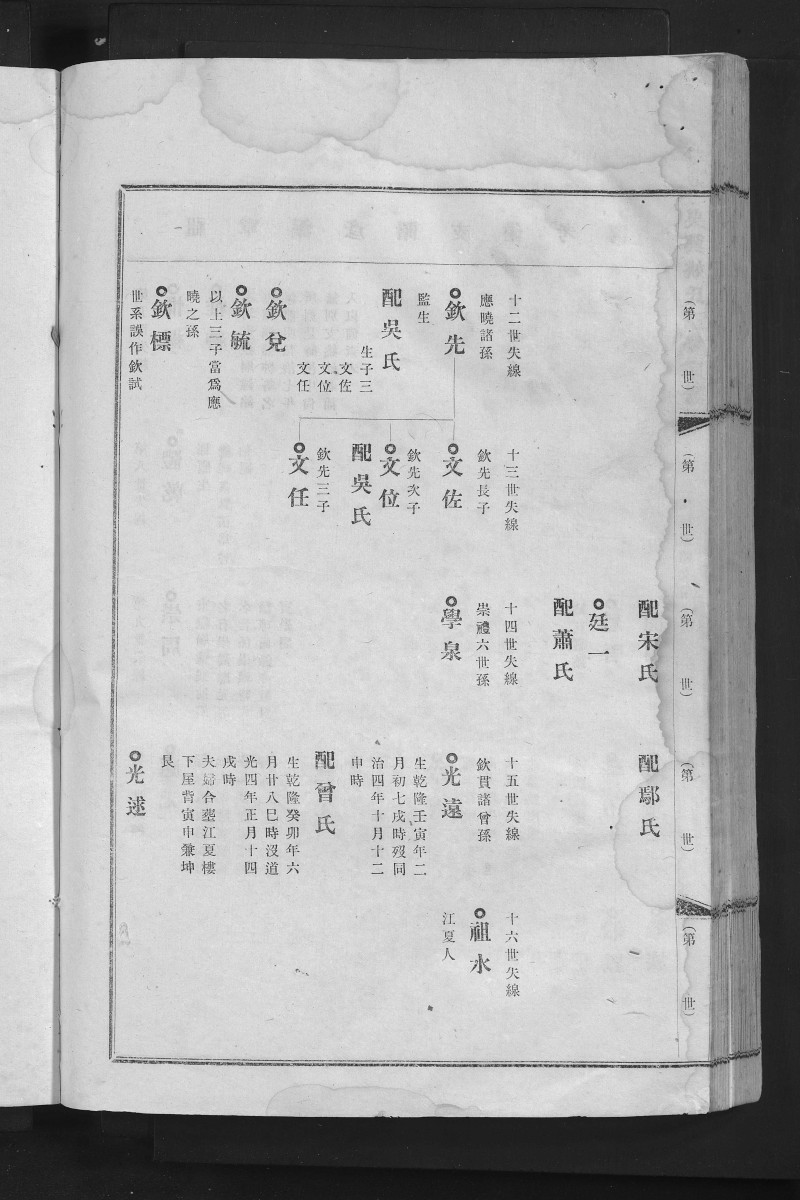 十二世失線
應曉諸孫
欽先
監生
配吳氏
生子三
文佐
文位
文任
欽兌
欽毓
以上三子當爲應
曉之孫
欽標
世系誤作欽試
十三世失線
欽先長子
文佐
欽先次子
文位
配吳氏
欽先三子
文任
配宋氏
廷一
配蕭氏
十四世失線
崇禮六世孫
學泉
配鄢氏
十五世失線
欽貫諸曾孫
光遠
生乾隆壬寅年二
月初七戌時歿同
治四年十月十二
申時
配曾氏
生乾隆癸卯年六
月廿八巳時沒道
光四年正月十四
戌時
夫婦合塟江夏樓
下屋背寅申兼坤
艮
光逑
十六世失線
祖水
江夏人
(第 世)
(第 世)
(第 世)
(第 世)
(第 世)